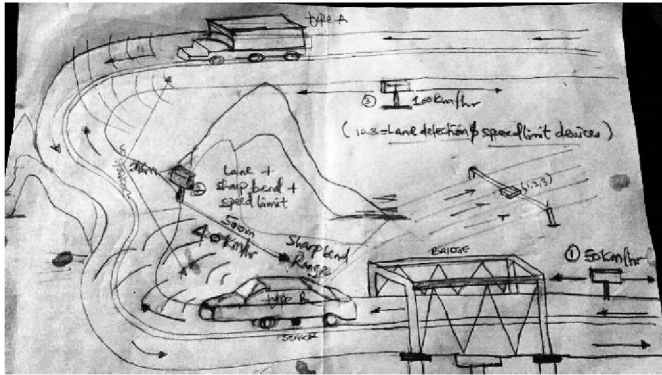 type A
③ 100Km/hr
(1,2,3 = Lane detection & speed limit devices)
②
Lane +
sharp bend +
speed limit
500m
40Km/hr
Sharp bend
Range
(1,2,3)
T
BRIDGE
① 50Km/hr
type B
sensor